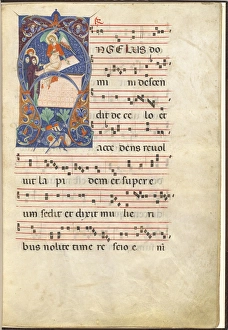 NGELUS do
mi ni descen
dit de ce lo et
acce dens revol
vit la pi dem et super e
um sedit et dixit mu lie ri
bus nolite time re scio e ni